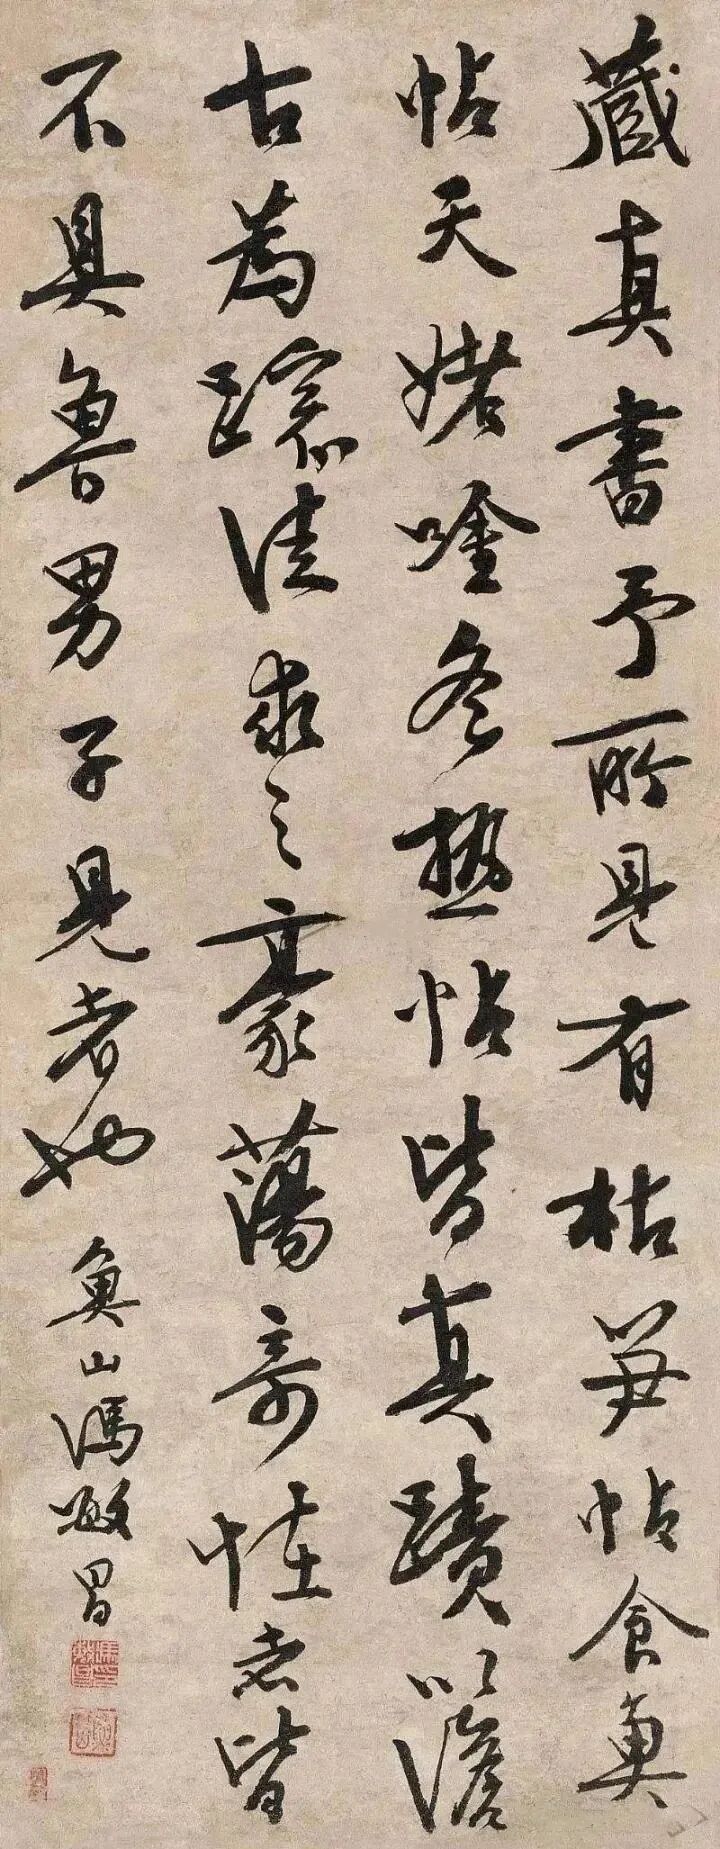 藏真書予所見有枯笋帖食魚
帖天姥唫冬熱帖皆真蹟以澹
古為踪徒求之豪蕩奇恠者皆
不具魯男子見者也
魚山馮敏昌